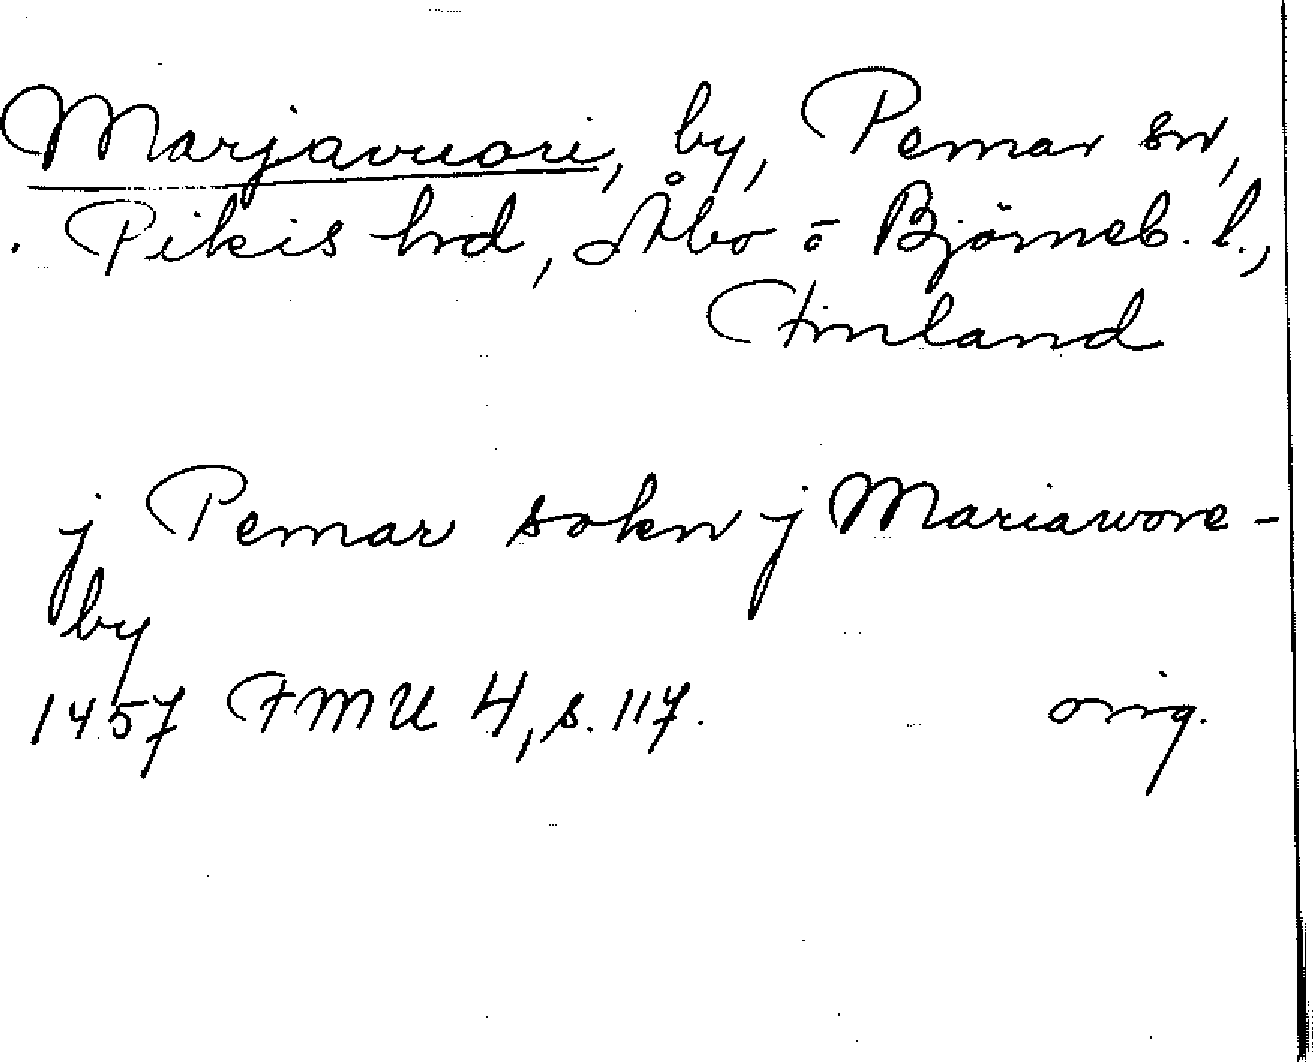 Marjavuori, by, Pemar sn,
Pikis hrd, Åbo o Björneb. l.,
Finland
j Pemar sokn j Mariawore-
by
1457 FMU 4, s. 117. orig.